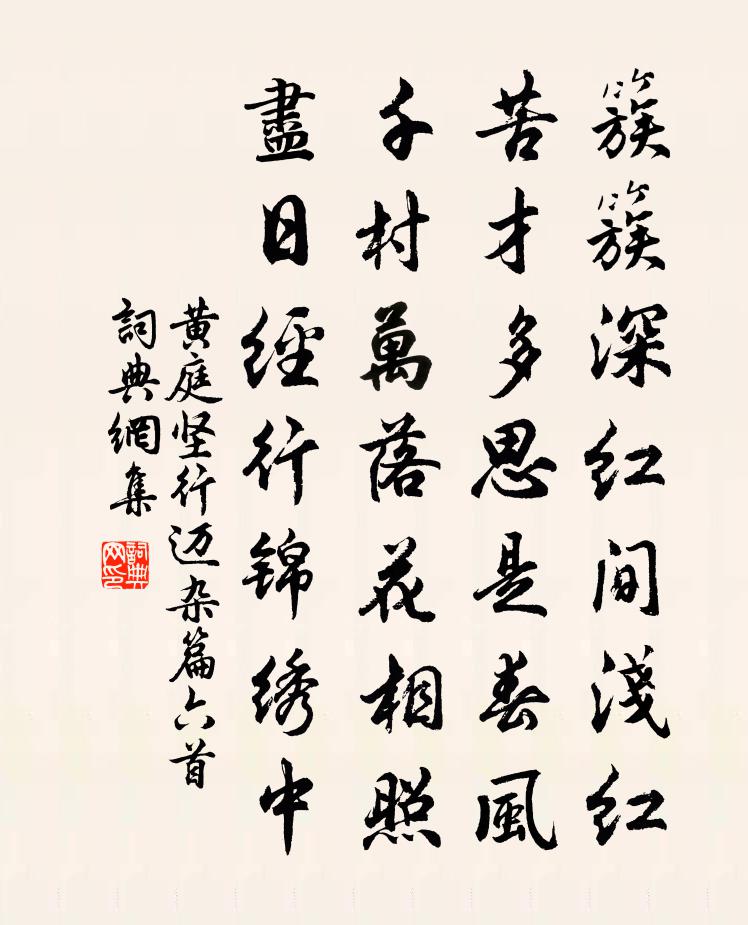 簇簇深红间淺红
苦才多思是春風
千村萬落花相照
盡日經行锦绣中
黄庭坚行迈杂篇六首
詞典網集
詞典网印